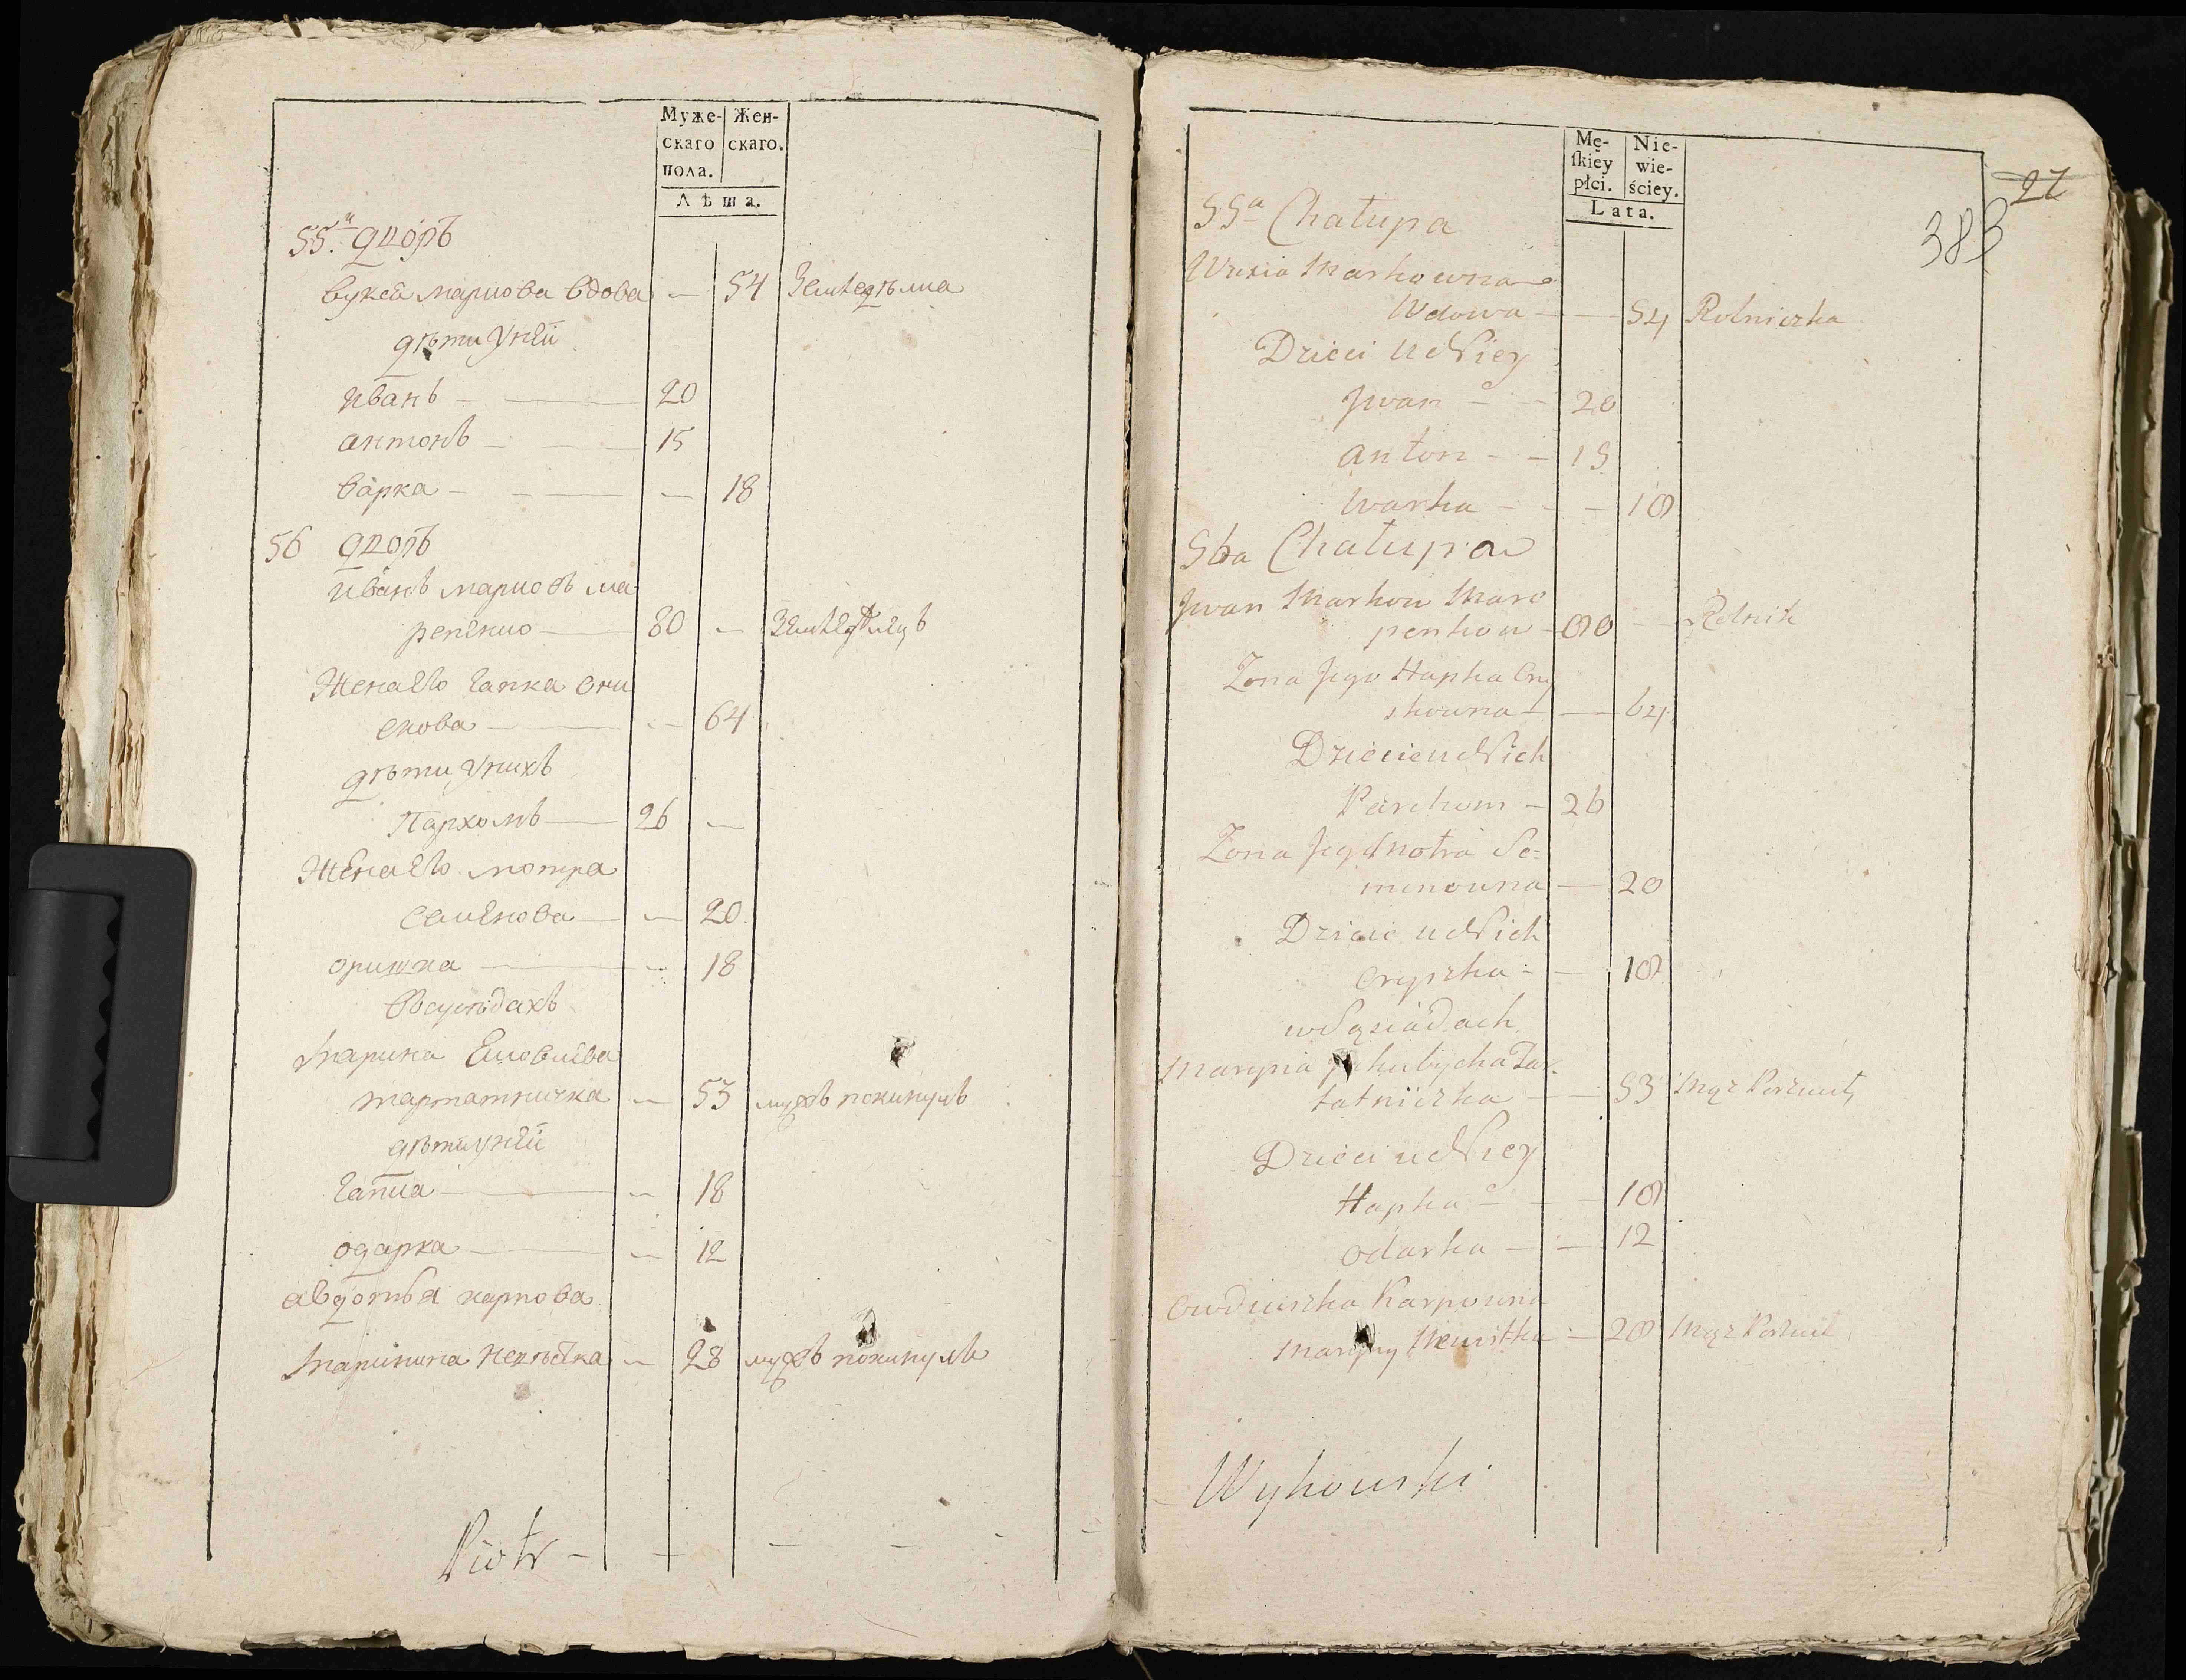 Муже-
скаго
пола.
Жен-
скаго.
Лѣта.
55.й дворъ
вукса маркова вдова — 54 Земледѣлка
дѣти унеи
иванъ — 20
антонъ — 15
варка — — 18
56 дворъ
иванъ марковъ ма
репенко — 80 — Земледѣлецъ
Жена Его гапка они
скова — — 64
дѣти унихъ
Пархомъ — 26 —
Жена Его мотра
семенова — — 20
оришка — — 18
Всусѣдахъ
Марина
тартатничка — 53 мужъ покинулъ
дѣти унеи
гапка — — 18
одарка — — 12
авдотья карпова
Маринина невѣстка — 28 мужъ покинулъ
Piotr — — — —
Mę-
ſkiey
płci.
Nie-
wie-
ściey.
Lata.
27
383
55a Chałupa
Wuxia Markowna
Wdowa — — 54 Rolniczka
Dzieci u Niey
Jwan — — 20
Anton — — 15
Warka — — — 18
56a Chałupa
Jwan Markow Mare
penkow — 80 — Rolnik
Zona Jego Hapka Ony
skowna — — 64
Dzieci u Nich
Parchom — 26
Zona Jego Motra Se=
menowna — 20
Dzieci u Nich
Oryszka — — 18
w Sąsiadach
Maryna Jakubycha Tar-
tatniczka — — 53 Mąż Porzucił
Dzieci u Niey
Hapka — — — 18
Odarka — — 12
Owdiuszka Karpowna
Maryny Newistka — 28 Mąż Porzucił
Wykowski